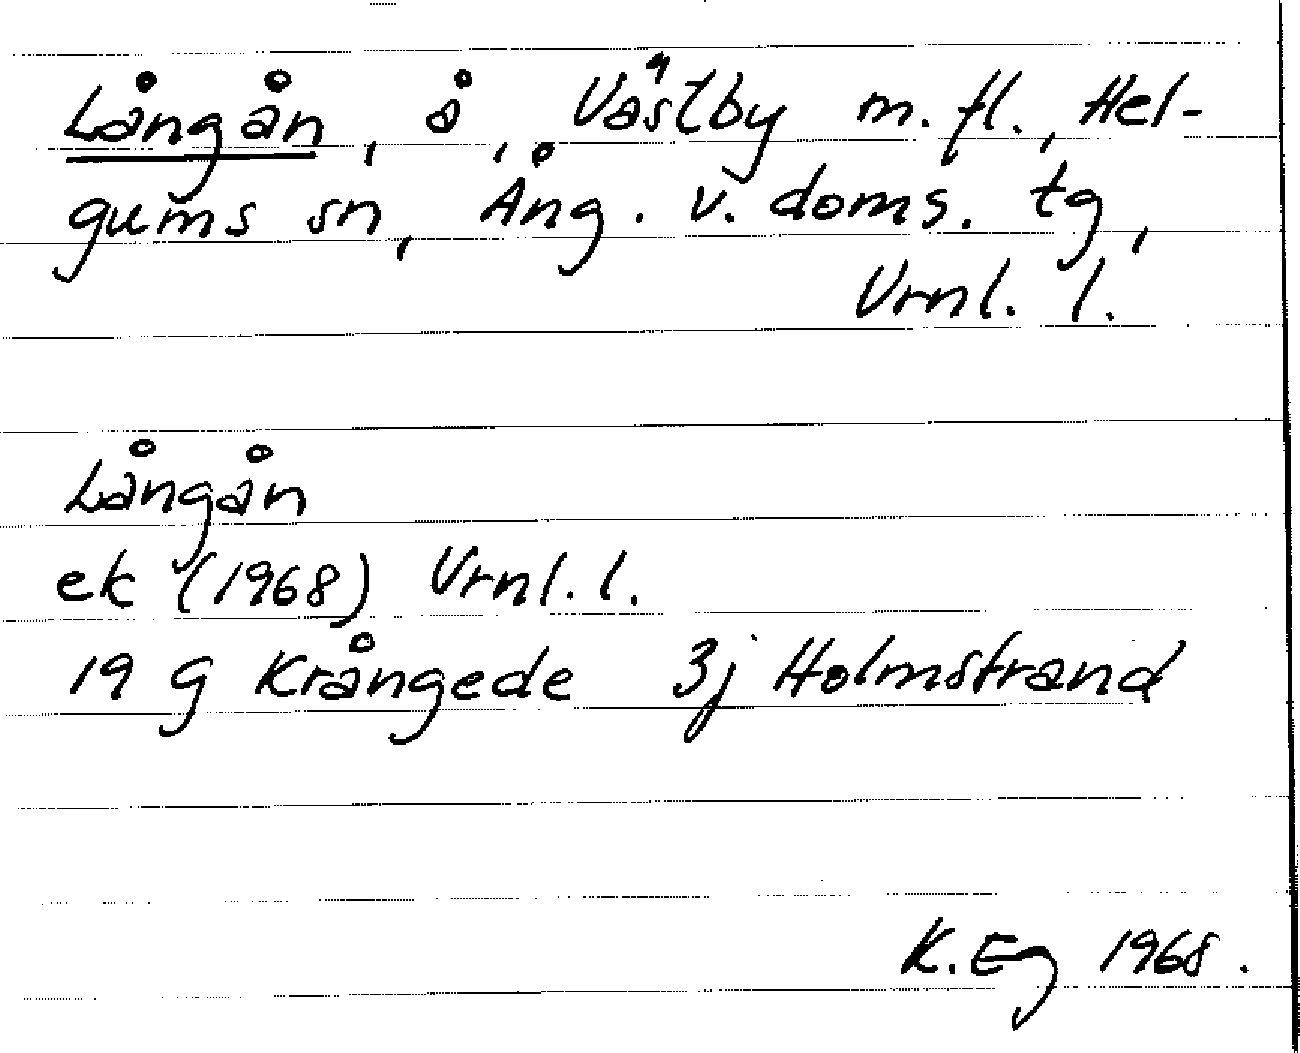 Långån, å, Västby m.fl., Hel-
gums sn, Ång. v. doms. tg,
Vrnl. l.
Långån
ek (1968) Vrnl. l.
19 g Krångede 3j Holmstrand
K. Eg 1968.